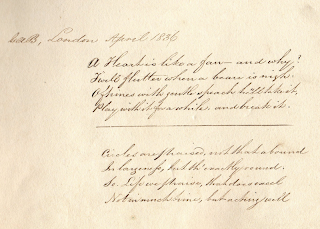 London April 1836
A Heart is like a fan — and why?
Twill flutter when a beau is nigh.
Oftimes with gentle speach he'll take it,
Play with it for a while and break it.
Circles are praised, not that abound
In largeness, but th' exactly round.
So Life we praise, that does excel
Not in much time, but acting well